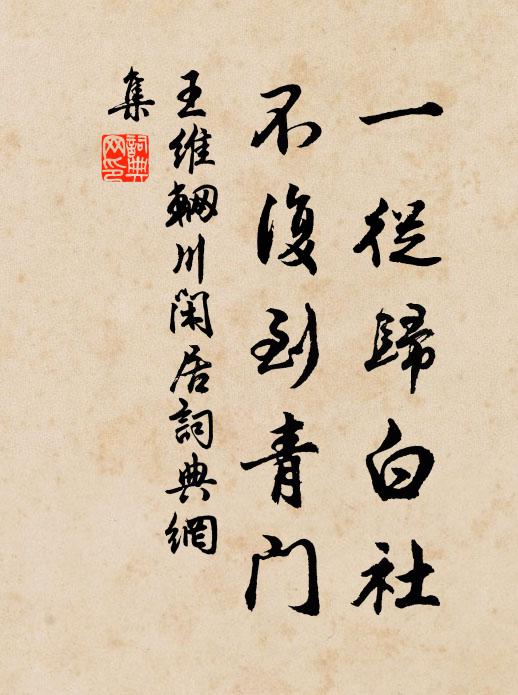 一從歸白社
不復到青門
王維輞川閑居詞典網
集
詞典
網印